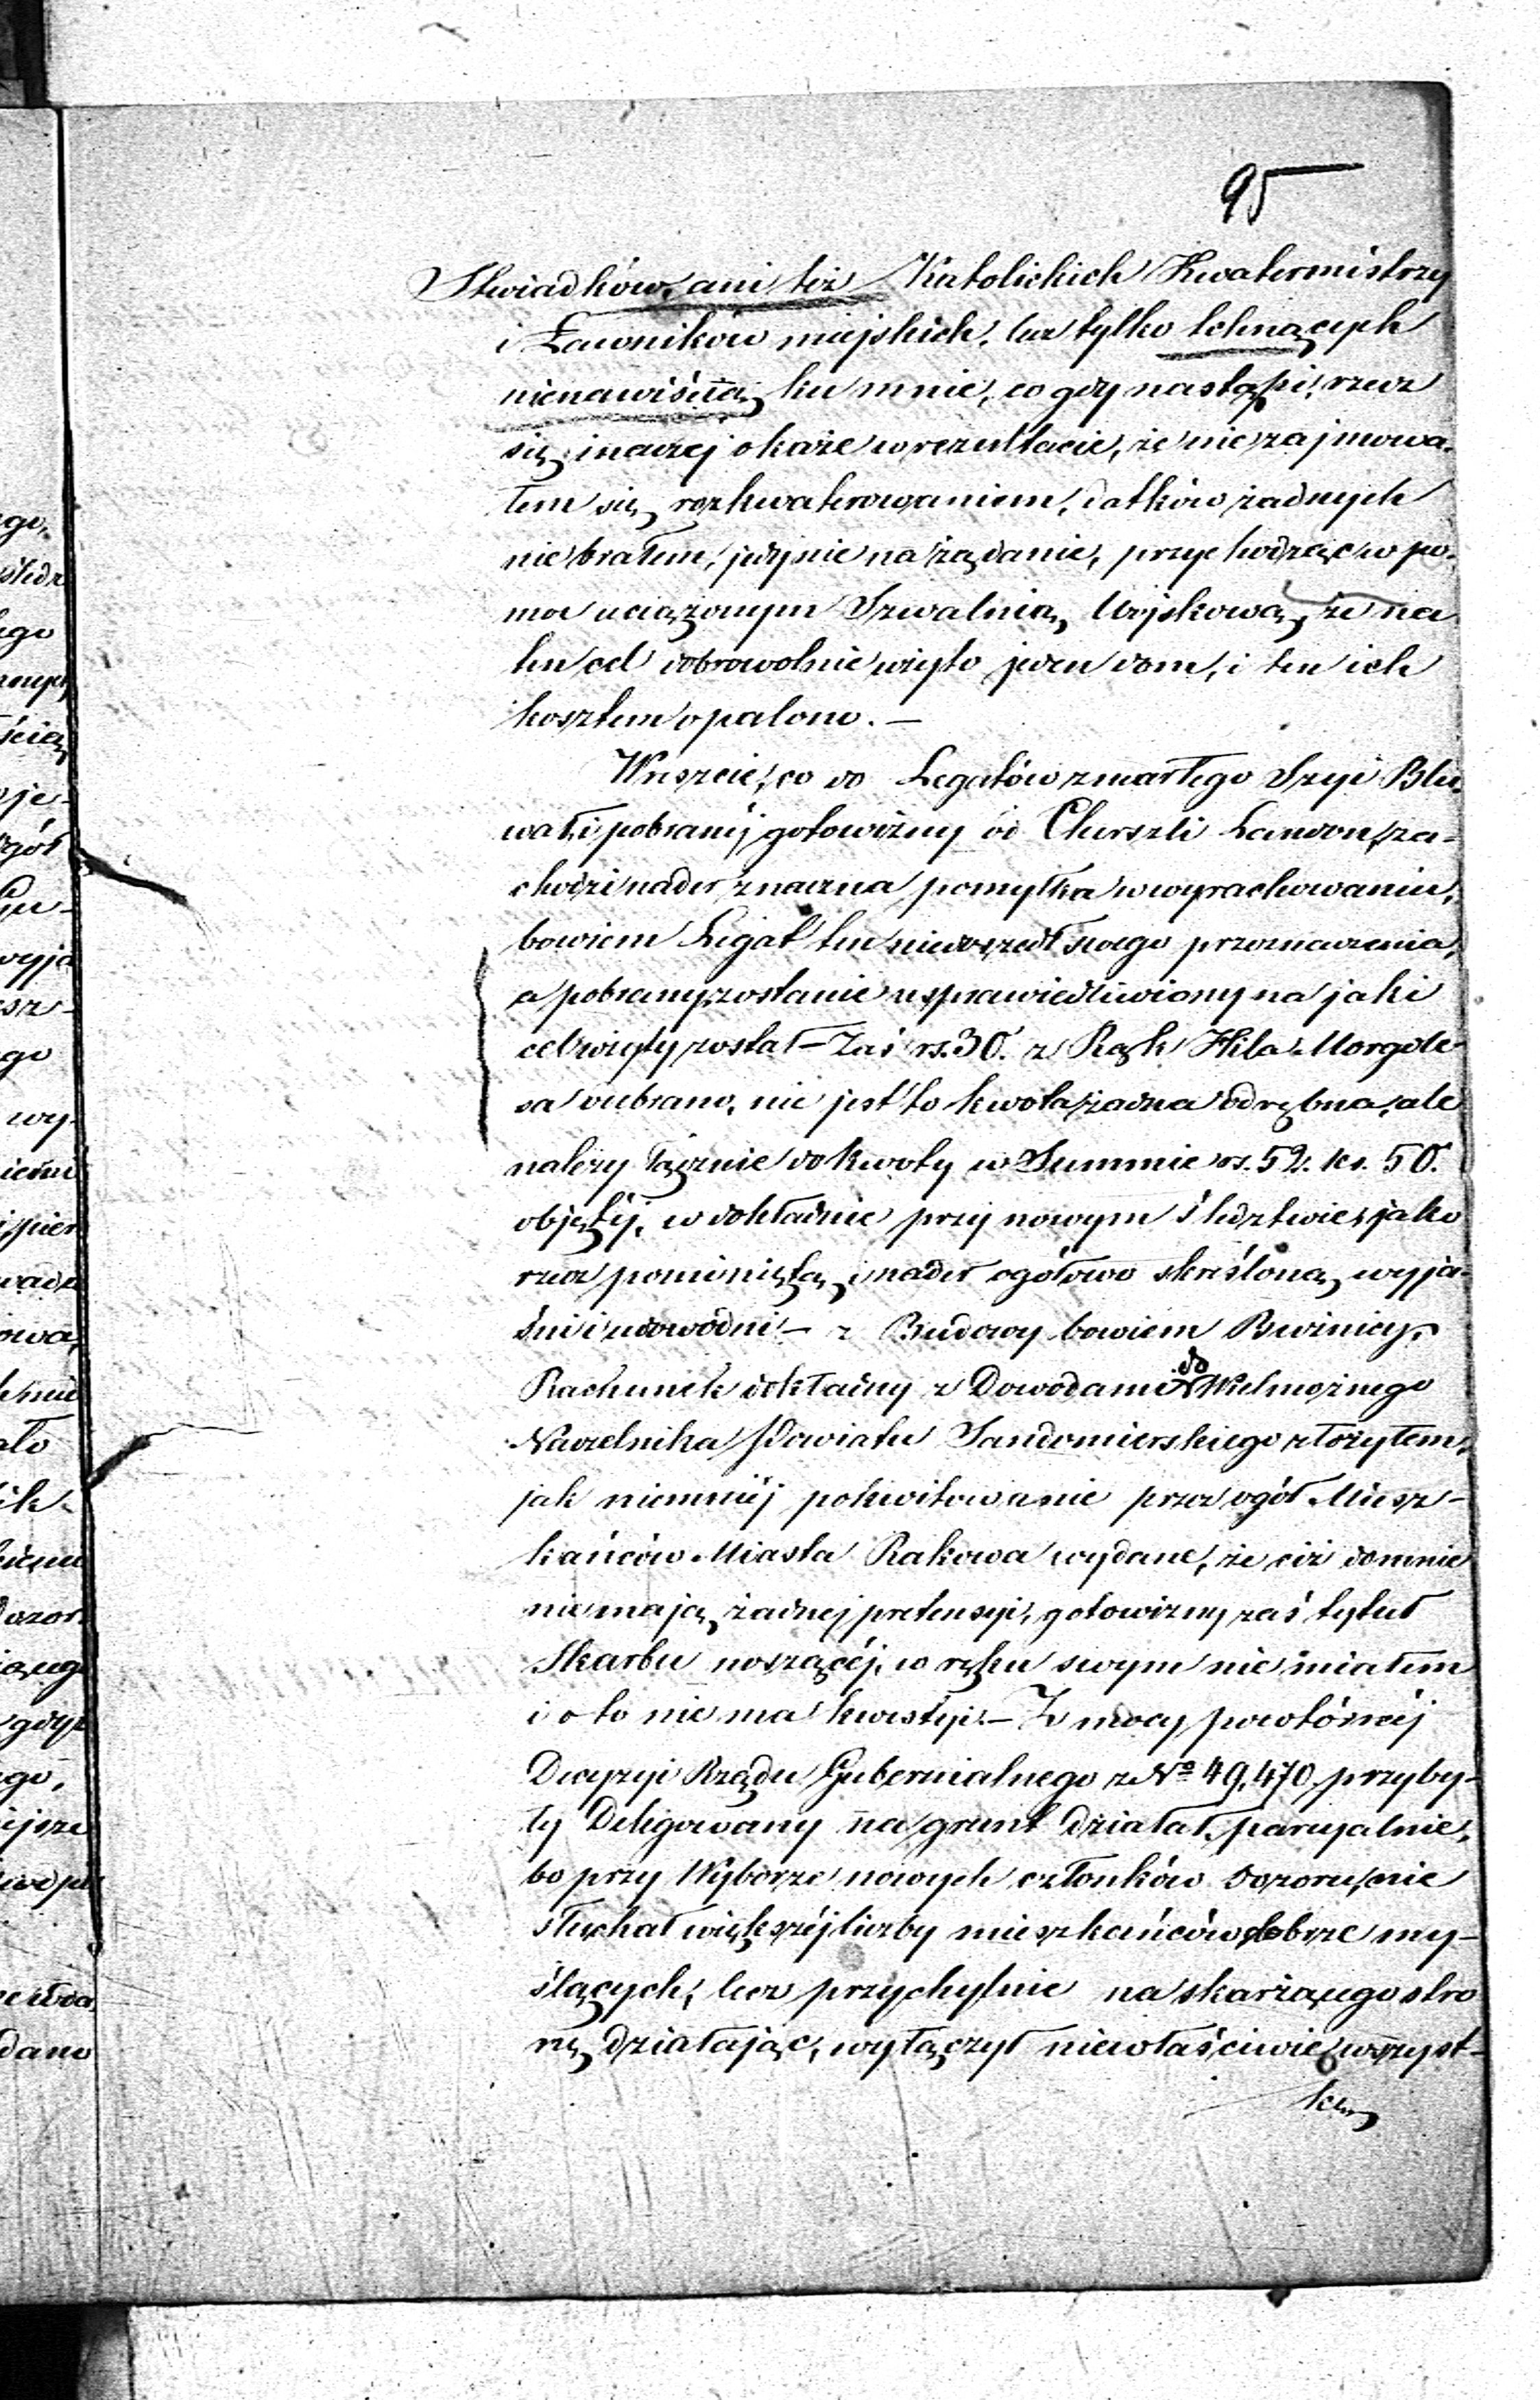 95
Świadków, ani też Katolickich Kwatermistrzy
i Ławników miejskich, lecz tylko tchnących
nienawiścią ku mnie, co gdy nastąpi, rzecz
się inaczej okaże w rezultacie, że nie zajmowa-
łem się rozkwaterowaniem, datków żadnych
nie brałem, jedynie na żądanie, przychodząc w po-
moc uciążonym Szwalnią Wojskową, że na
ten cel dobrowolnie wzięto jeden dom, i ten ich
kosztem opalono. —
Wreszcie, co do Legatów zmarłego Szyi Blu-
wat, i pobranéj gotowizny od Churszli Landon, za-
chodzi nader znaczna pomyłka w wyrachowaniu,
bowiem Legat ten niedoszedł swego przeznaczenia,
a pobrany, zostanie usprawiedliwiony na jaki
cel wzięty został — Zaś rs. 30. z Rąk Hila Morgole-
sa odebrano, nie jest to kwota żadna odrębna, ale
należy łącznie do kwoty w Summie rs. 52. k. 50.
objętéj, co dokładnie przy nowym śledztwie, jako
rzecz pominiętą i nader ogółowo skreśloną wyja-
śni i udowodni — z Budowy bowiem Bóżnicy,
Rachunek dokładny z Dowodami do Wielmożnego
Naczelnika Powiatu Sandomierskiego złożyłem,
jak niemniéj pokwitowanie przez ogół Miesz-
kańców Miasta Rakowa wydane, że ciż do mnie
nie mają żadnej pretensyi, gotowizny zaś tytuł
Skarbu noszącéj, w ręku swym nie miałem
i o to nie ma kwestyi. — Z mocy powtórnéj
Decyzyi Rządu Gubernialnego z No 49,470, przyby-
ły Delegowany na grunt działał parcyalnie,
bo przy Wyborze nowych członków Dozoru, nie
słuchał większéj liczby mieszkańców dobrze my-
ślących, lecz przychylnie na skarżącego stro
nę działając, wyłączył niewłaściwie wszyst-